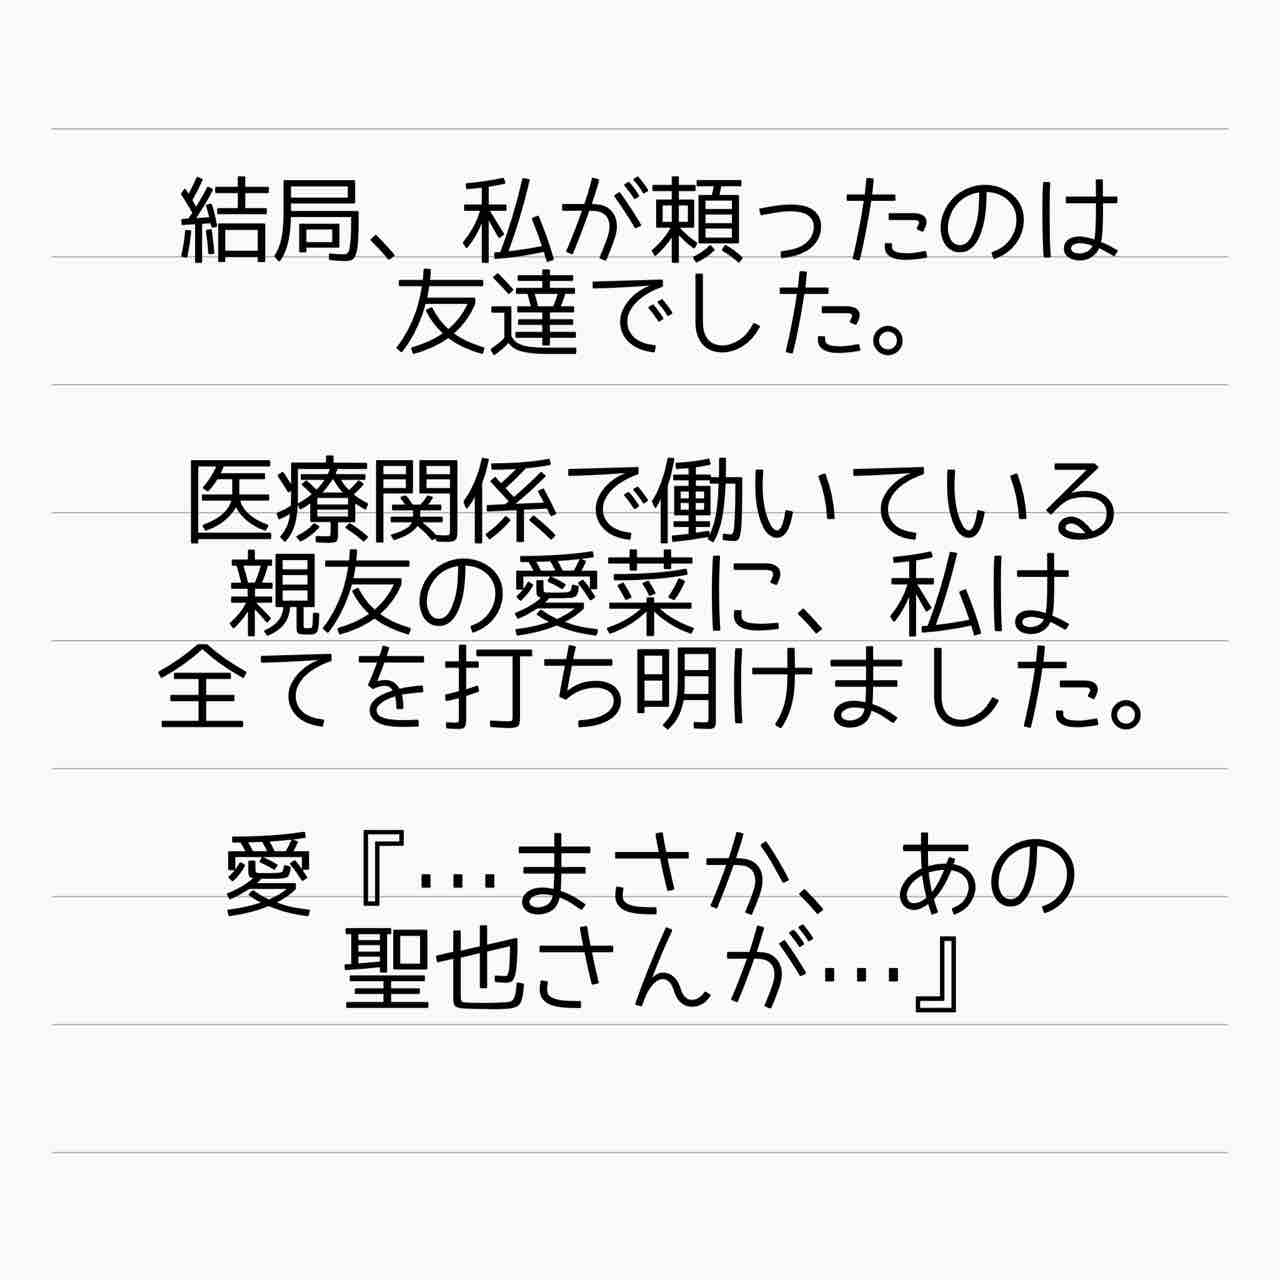 結局、私が頼ったのは
友達でした。
医療関係で働いている
親友の愛菜に、私は
全てを打ち明けました。
愛『…まさか、あの
聖也さんが…』